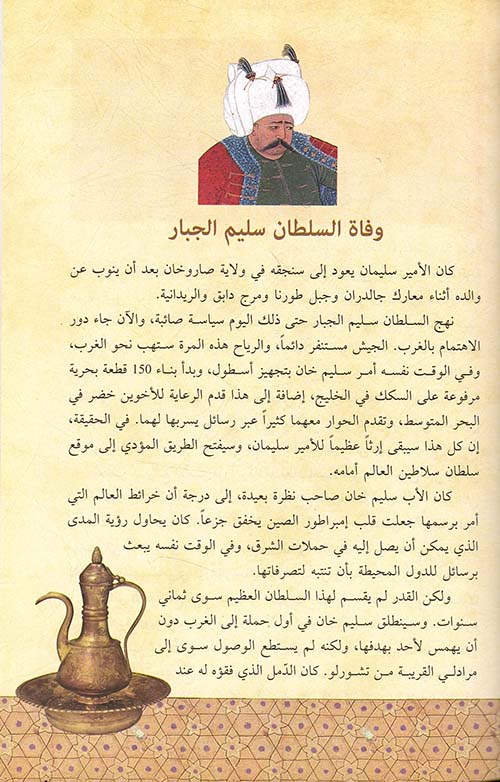 وفاة السلطان سليم الجبار
كان الأمير سليمان يعود إلى سنجقه في ولاية صاروخان بعد أن ينوب عن
والده أثناء معارك جالدران وجبل طورنا ومرج دابق والريدانية.
نهج السلطان سليم الجبار حتى ذلك اليوم سياسة صائبة، والآن جاء دور
الاهتمام بالغرب. الجيش مستنفر دائماً، والرياح هذه المرة ستهب نحو الغرب،
وفي الوقت نفسه أمر سليم خان بتجهيز أسطول، وبدأ بناء 150 قطعة بحرية
مرفوعة على السكك في الخليج، إضافة إلى هذا قدم الرعاية للأخوين خضر في
البحر المتوسط، وتقدم الحوار معهما كثيراً عبر رسائل يسربها لهما. في الحقيقة،
إن كل هذا سيبقى إرثاً عظيماً للأمير سليمان، وسيفتح الطريق المؤدي إلى موقع
سلطان سلاطين العالم أمامه.
كان الأب سليم خان صاحب نظرة بعيدة، إلى درجة أن خرائط العالم التي
أمر برسمها جعلت قلب إمبراطور الصين يخفق جزعاً. كان يحاول رؤية المدى
الذي يمكن أن يصل إليه في حملات الشرق، وفي الوقت نفسه يبعث
برسائل للدول المحيطة بأن تنتبه لتصرفاتها.
ولكن القدر لم يقسم لهذا السلطان العظيم سوى ثماني
سنوات. وسينطلق سليم خان في أول حملة إلى الغرب دون
أن يهمس لأحد بهدفها، ولكنه لم يستطع الوصول سوى إلى
مرادلي القريبة من تشورلو. كان الدّمل الذي فقؤه له عند